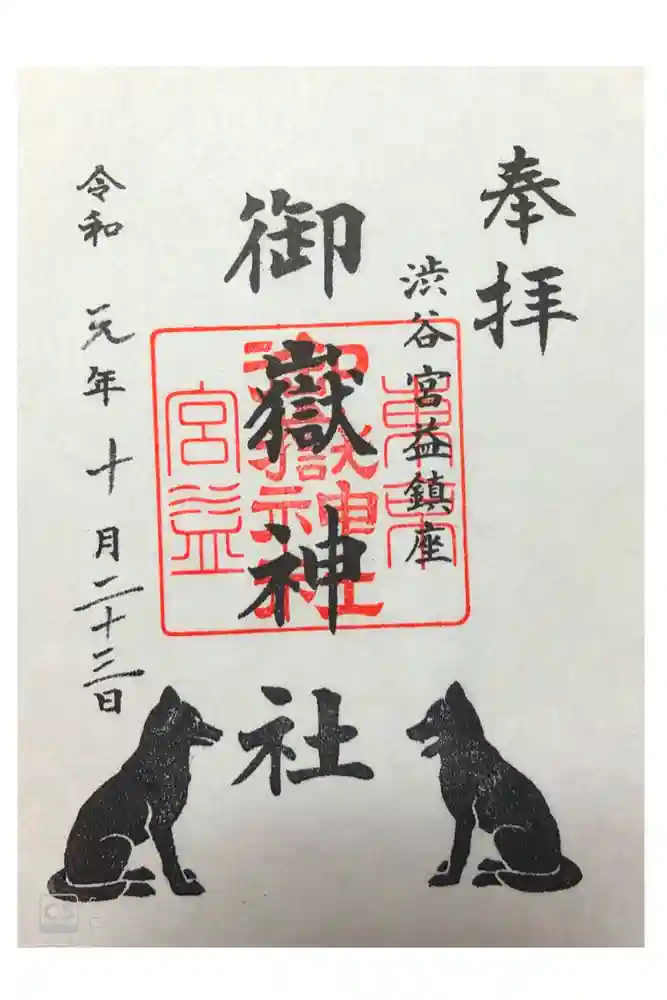 奉拝
渋谷宮益鎮座
御嶽神社
令和元年十月二十三日
宮益
CS